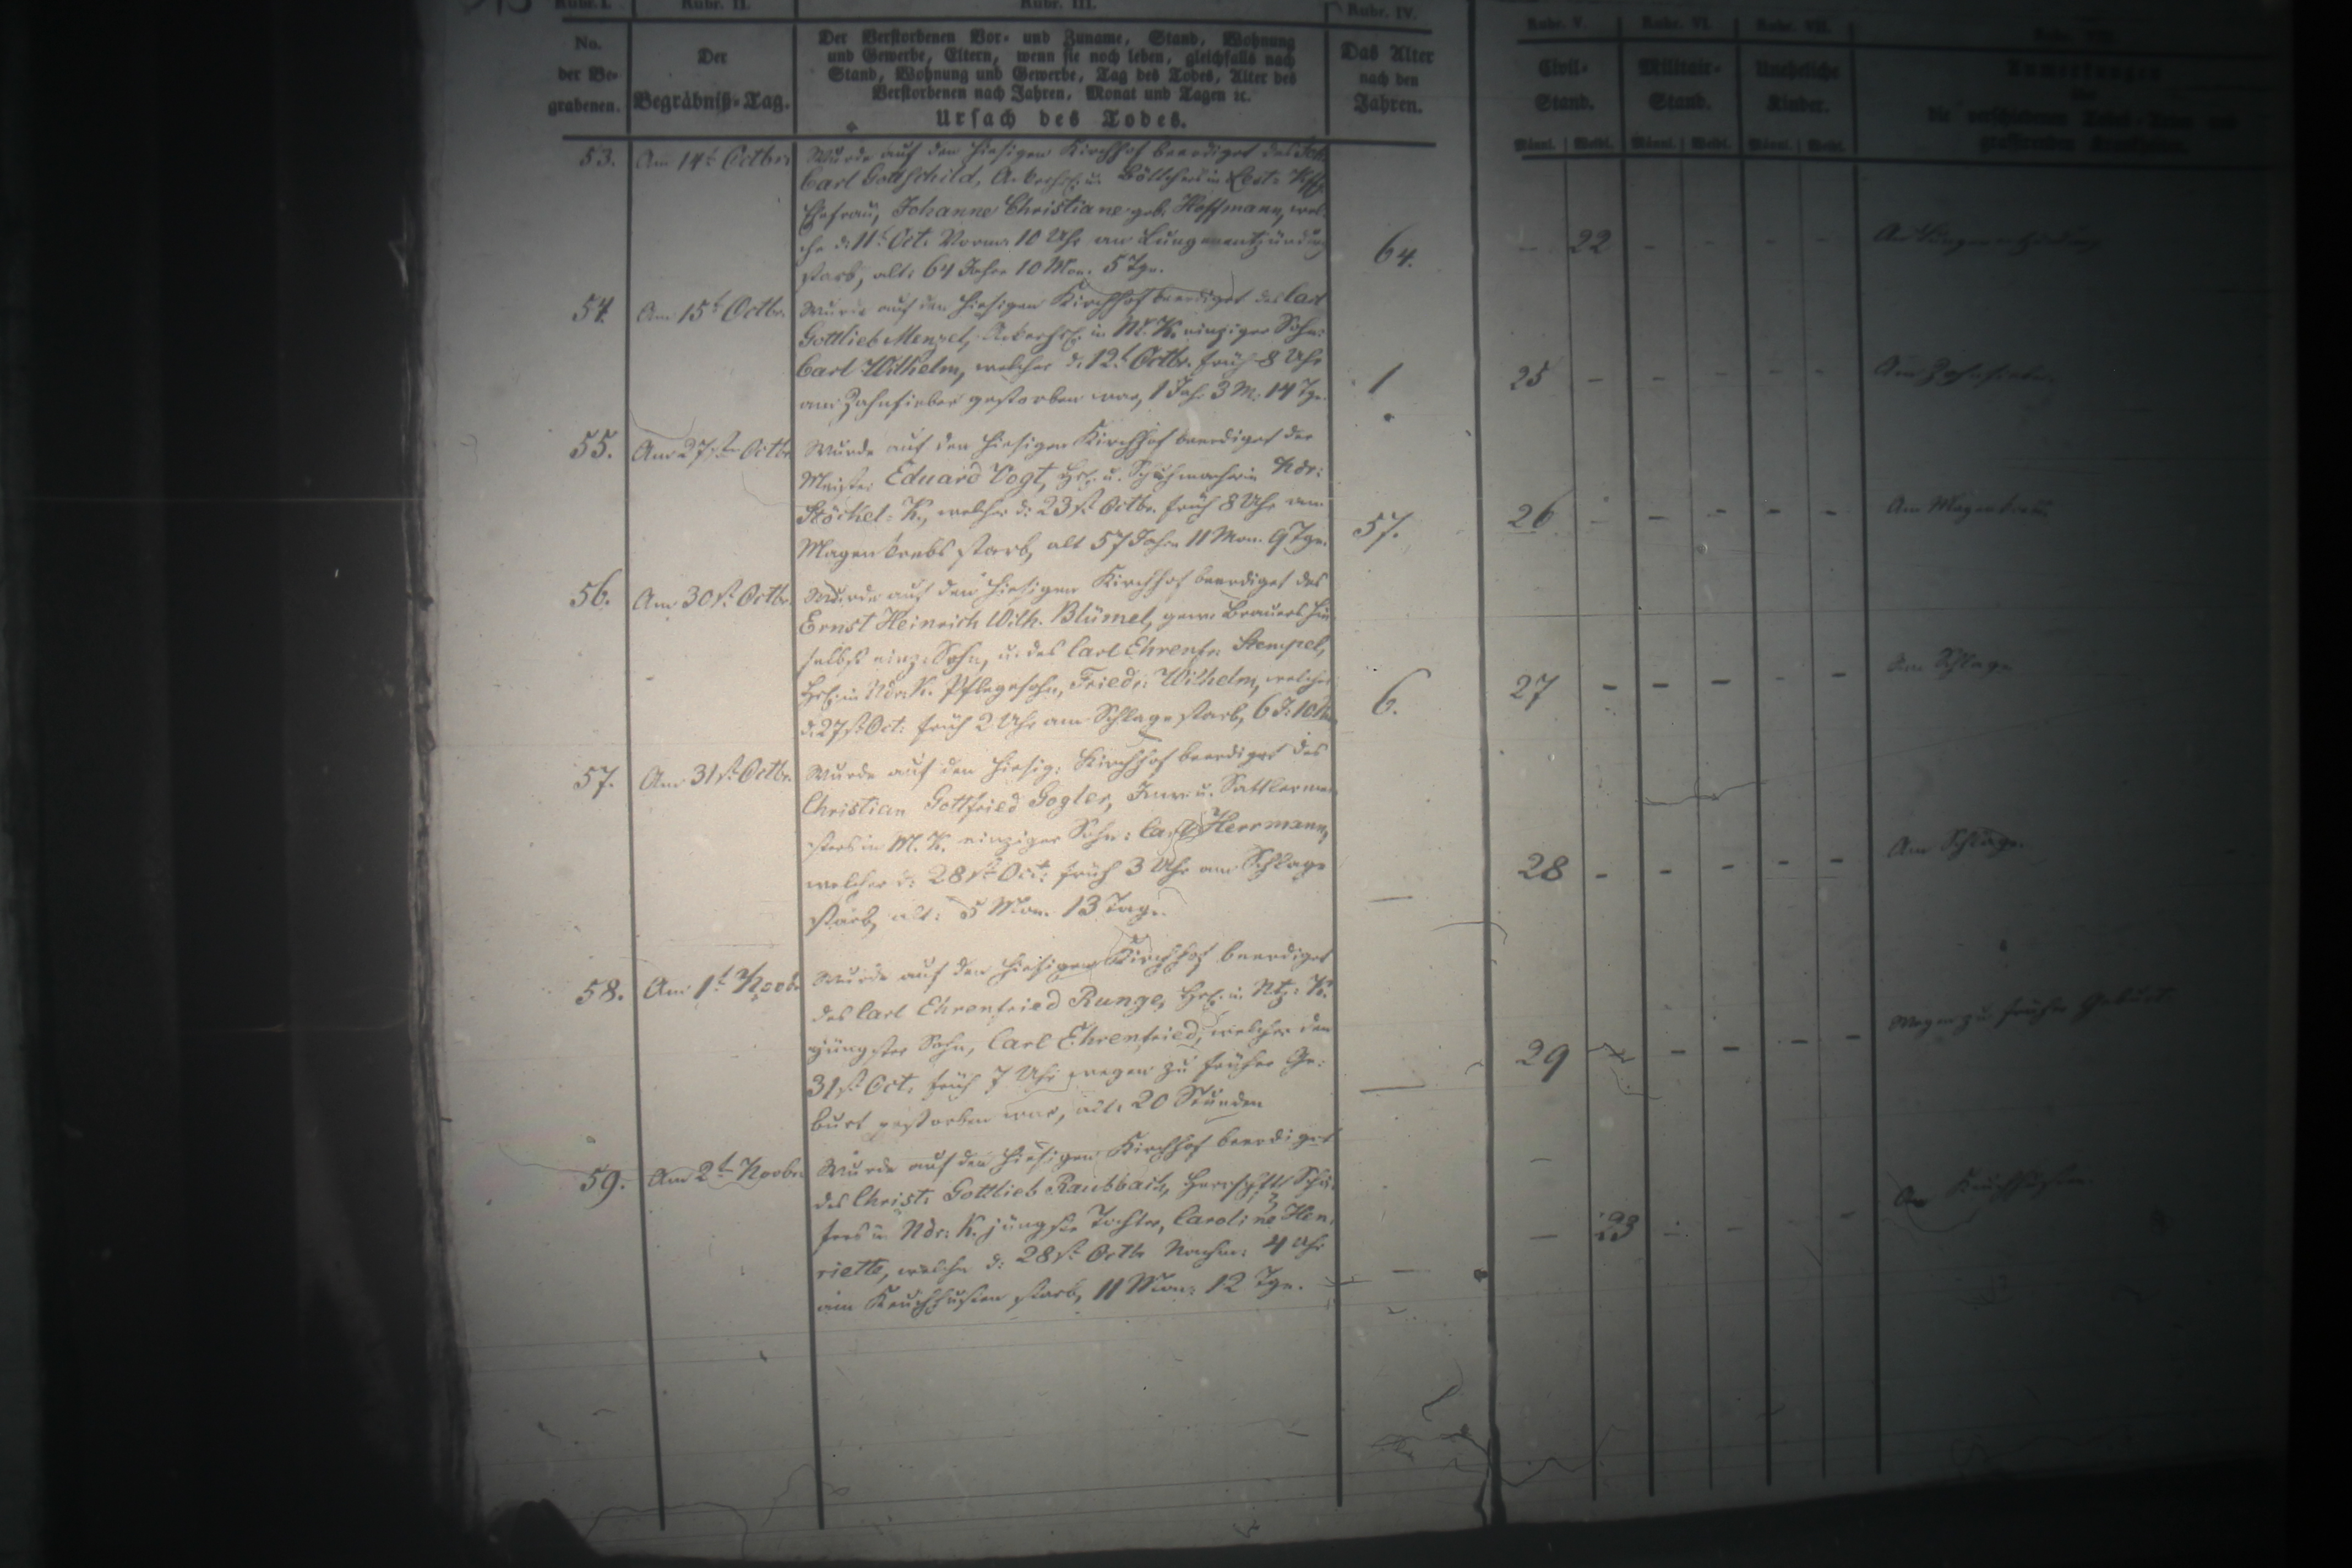 Rubr. I. Rubr. II. Rubr. III. Rubr. IV. Rubr. V. Rubr. VI. Rubr. VII.
No. der Begrabenen.
Der Begräbniß-Tag.
Der Verstorbenen Vor- und Zuname, Stand, Wohnung
und Gewerbe, Eltern, wenn sie noch leben, gleichfalls nach
Stand, Wohnung und Gewerbe, Tag des Todes, Alter des
Verstorbenen nach Jahren, Monat und Tagen ꝛc.
Ursach des Todes.
Das Alter nach den Jahren.
Civil-Stand.
Militair-Stand.
Uneheliche Kinder.
Männl. Weibl. Männl. Weibl. Männl. Weibl.
53. Am 14t Octbr:
Wurde auf den hiesigen Kirchhof beerdiget des Joh.
Carl Gottschild, u. Böttchers in
Ehefrau, Johanne Christiane geb. Hoffmann, wel-
che d: 11t Oct. Vorm. 10 Uhr an Lungenentzündung
starb, alt: 64 Jahre 10 Mon. 5 Tge.
64. – 22 – – – –
54. Am 15t Octbr.
Wurde auf den hiesigen Kirchhof beerdiget des Carl
Gottlieb Menzel, in M. K. einziger Sohn:
Carl Wilhelm, welcher d. 12t Octbr. früh 8 Uhr
am Zahnfieber gestorben war, 1 Jah. 3 M. 14 Tge.
1 25 – – – – – Am Zahnfieber
55. Am 27st Octbr
Wurde auf den hiesigen Kirchhof beerdiget der
Meister Eduard Vogt, u. Schuhmacher in Ndr:
Stöckel-K., welcher d: 23st Octbr. früh 8 Uhr am
Magenkrebs starb, alt 57 Jahre 11 Mon. 9 Tge.
57. 26 – – – – – Am Magenkrebs
56. Am 30st Octbr.
Wurde auf den hiesigen Kirchhof beerdiget des
Ernst Heinrich Wilh. Blümel, gew. Brauers hie-
selbst einz. Sohn, u. des Carl Ehrenfr. Stempel,
in Ndr. K. Pflegesohn, Friedr: Wilhelm, welcher
d. 27st Oct: früh 2 Uhr am Schlage starb, 6 J. 10
6. 27 – – – – – Am Schlage
57. Am 31st Octbr.
Wurde auf den hiesig: Kirchhof beerdiget des
Christian Gottfried Gogler, Inw. u. Sattlermei-
sters in M. K. einziger Sohn: Carl Herrmann,
welcher d: 28st Oct: früh 3 Uhr am Schlage
starb, alt: 5 Mon. 13 Tage.
— 28 – – – – – Am Schlage.
58. Am 1t Novbr
Wurde auf den hiesigen Kirchhof beerdiget
des Carl Ehrenfried Runge, in K.
jüngster Sohn, Carl Ehrenfried, welcher den
31st Oct. früh 7 Uhr wegen zu früher Ge-
burt gestorben war, alt: 20 Stunden
— 29 – – – – – Wegen zu früher Geburt.
59. Am 2t Novbr.
Wurde auf den hiesigen Kirchhof beerdiget
des Christ. Gottlieb Raubbach, herrschftl. Schä-
fers in Ndr: K. jüngste Tochter, Caroline Hen-
riette, welche d: 28st Octbr Nachm: 4 Uhr
am Keuchhusten starb, 11 Mon. 12 Tge.
— – 23 – – – – Am Keuchhusten.